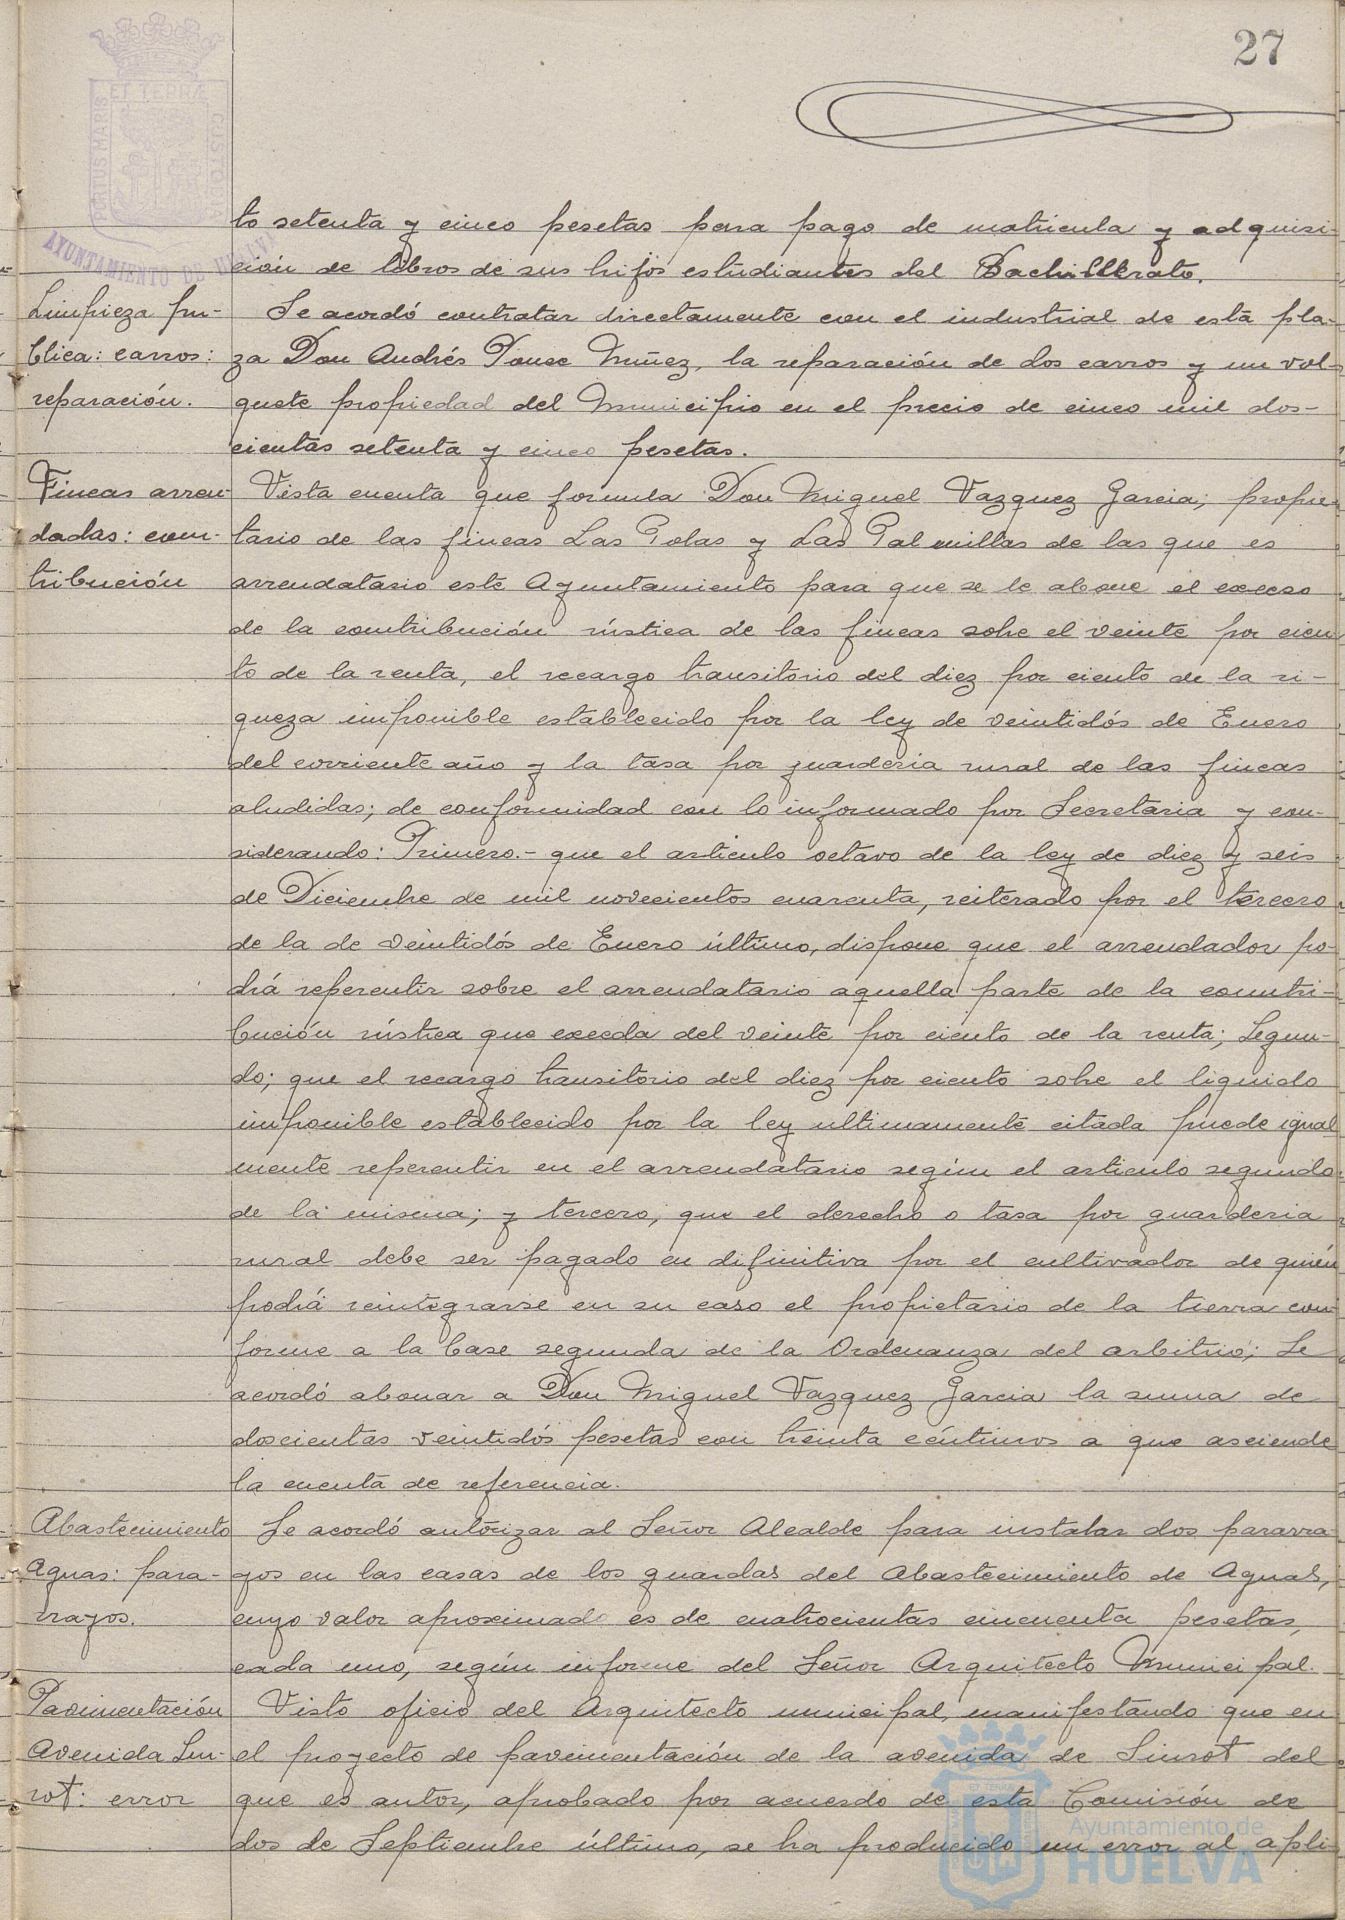 27
ET TERRÆ
PORTUS MARIS
CUSTODIA
AYUNTAMIENTO DE HUELVA
to setenta y cinco pesetas para pago de matricula y adquisi-
ción de libros de sus hijos estudiantes del Bachillerato.
Limpieza pu-
blica: carros:
reparación.
Se acordó contratar directamente con el industrial de esta pla-
za Don Andrés Ponce Muñez, la reparación de dos carros y un vol-
quete propiedad del Municipio en el precio de cinco mil dos-
cientas setenta y cinco pesetas.
Fincas arren-
dadas: con-
tribución
Vista cuenta que formula Don Miguel Vazquez Garcia, propie-
tario de las fincas Las Polas y Las Palmillas de las que es
arrendatario este Ayuntamiento para que se le abone el exceso
de la contribución rústica de las fincas sobre el veinte por cien
to de la renta, el recargo transitorio del diez por ciento de la ri-
queza imponible establecido por la ley de veintidós de Enero
del corriente año y la tasa por guarderia rural de las fincas
aludidas; de conformidad con lo informado por Secretaria y con-
siderando: Primero.- que el articulo octavo de la ley de diez y seis
de Diciembre de mil novecientos cuarenta, reiterado por el tercero
de la de veintidós de Enero último, dispone que el arrendador po-
drá repercutir sobre el arrendatario aquella parte de la contri-
bución rústica que exceda del veinte por ciento de la renta; Segun-
do; que el recargo transitorio del diez por ciento sobre el liquido
imponible establecido por la ley ultimamente citada puede igual
mente repercutir en el arrendatario según el articulo segundo
de la misma; y tercero, que el derecho o tasa por guarderia
rural debe ser pagado en difinitiva por el cultivador de quién
podrá reintegrarse en su caso el propietario de la tierra con-
forme a la base segunda de la Ordenanza del arbitrio; Se
acordó abonar a Don Miguel Vazquez Garcia la suma de
doscientas veintidós pesetas con treinta céntimos a que asciende
la cuenta de referencia.
Abastecimiento
Aguas: para-
rrayos.
Se acordó autorizar al Señor Alcalde para instalar dos pararra
yos en las casas de los guardas del Abastecimiento de Aguas,
cuyo valor aproximado es de cuatrocientas cincuenta pesetas,
cada uno, según informe del Señor Arquitecto Municipal.
Pavimentación
Avenida Sun-
rot: error
Visto oficio del Arquitecto municipal, manifestando que en
el proyecto de pavimentación de la avenida de Sunrot del
que es autor, aprobado por acuerdo de esta Comisión de
dos de Septiembre último, se ha producido un error al apli-
Ayuntamiento de
HUELVA